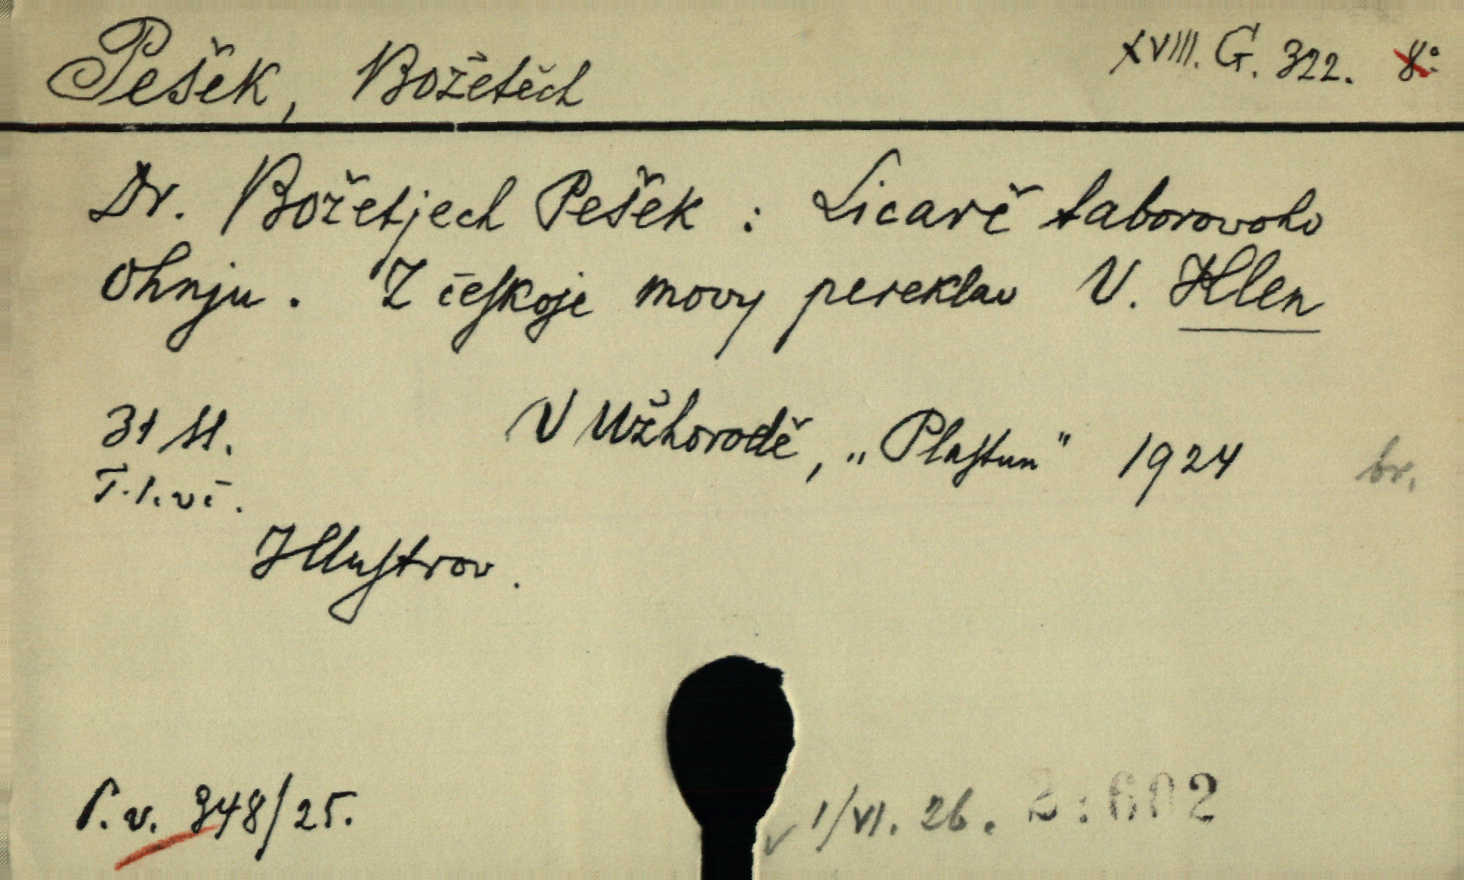 Pešek, Božetěch
XVIII. G. 322. 8°.
Dr. Božetjech Pešek : Licarě taborovoho
ohnju. Z českoje movy pereklav V. Hlen
31 st.
V Užhorodě, „Plastun" 1924
br.
T. 1. vč.
Illustrov.
P. v. 348/25.
1/VI. 26. 2:602